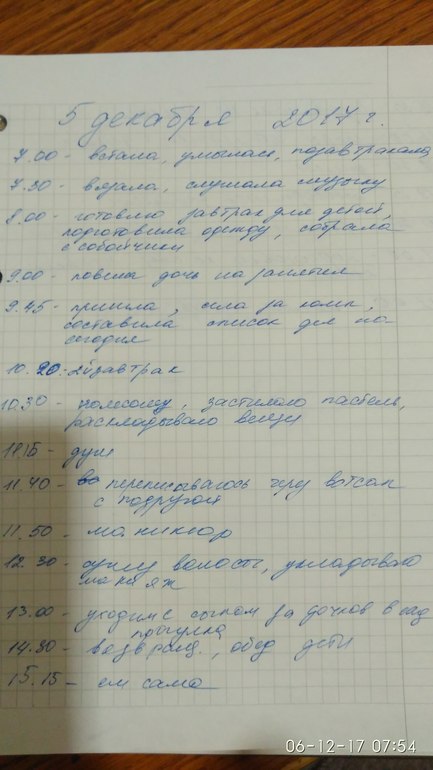 5 декабря 2017 г.
7.00 - встала, умылась, позавтракала
7.30 - вязала, слушала музыку
8.00 - готовлю завтрак для детей,
подготовила одежду, собрала
с собойчики
9.00 - повела дочь на занятия
9.45 - пришла, села за комп,
составила список дел на
сегодня
10.20 - 2й завтрак
10.30 - пылесошу, застилаю пастель,
раскладываю вещи
11.15 - душ
11.40 - переписываюсь чрз вотсап
с подругой
11.50 - маникюр
12.30 - сушу волосы, укладываю
макияж
13.00 - уходим с сыном за дочкой в сад
прогулка
14.30 - возвращ., обед дети
15.15 - ем сама
06-12-17 07:54